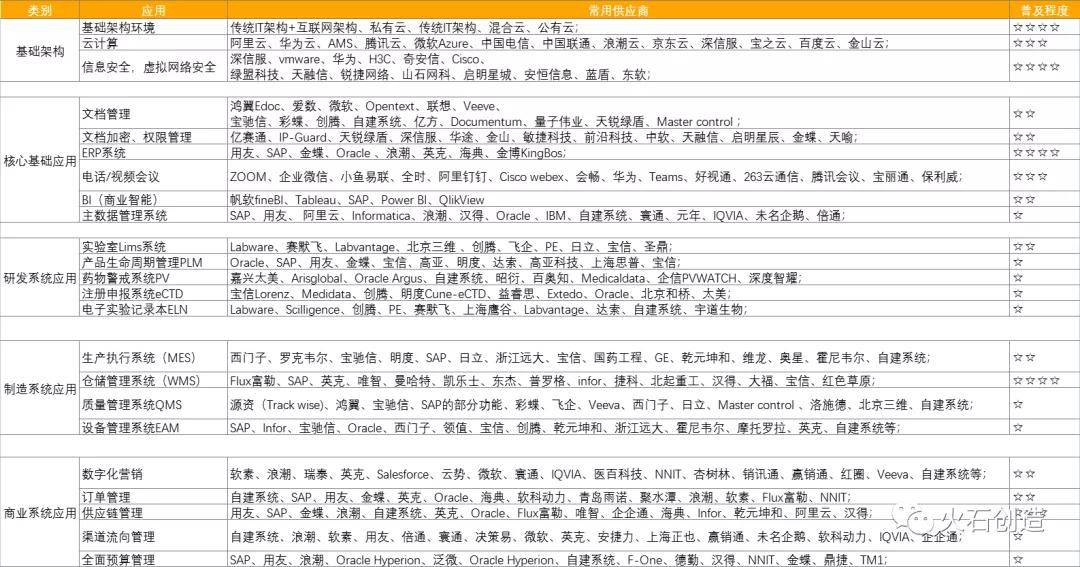 类别 应用 常用供应商 普及程度
基础架构
基础架构环境 传统IT架构+互联网架构、私有云、传统IT架构、混合云、公有云; ☆☆☆☆
云计算 阿里云、华为云、AMS、腾讯云、微软Azure、中国电信、中国联通、浪潮云、京东云、深信服、宝之云、百度云、金山云; ☆☆☆
信息安全，虚拟网络安全 深信服、vmware、华为、H3C、奇安信、Cisco、
绿盟科技、天融信、锐捷网络、山石网科、启明星城、安恒信息、蓝盾、东软; ☆☆☆☆
核心基础应用
文档管理 鸿翼Edoc、爱数、微软、Opentext、联想、Veeve、
宝驰信、彩蝶、创腾、自建系统、亿方、Documentum、量子伟业、天锐绿盾、Master control ; ☆☆
文档加密、权限管理 亿赛通、IP-Guard、天锐绿盾、深信服、华途、金山、敏捷科技、前沿科技、中软、天融信、启明星辰、金蝶、天喻; ☆☆
ERP系统 用友、SAP、金蝶、Oracle 、浪潮、英克、海典、金博KingBos; ☆☆☆☆
电话/视频会议 ZOOM、企业微信、小鱼易联、全时、阿里钉钉、Cisco webex、会畅、华为、Teams、好视通、263云通信、腾讯会议、宝丽通、保利威; ☆☆☆
BI（商业智能） 帆软fineBI、Tableau、SAP、Power BI、QlikView ☆☆
主数据管理系统 SAP、用友、 阿里云、Informatica、浪潮、汉得、Oracle 、IBM、自建系统、寰通、元年、IQVIA、未名企鹅、倍通; ☆
研发系统应用
实验室Lims系统 Labware、赛默飞、Labvantage、北京三维 、创腾、飞企、PE、日立、宝信、圣鼎; ☆☆
产品生命周期管理PLM Oracle、SAP、用友、金蝶、宝信、高亚、明度、达索、高亚科技、上海思普、宝信; ☆
药物警戒系统PV 嘉兴太美、Arisglobal、Oracle Argus、自建系统、昭衍、百奥知、Medicaldata、企信PVWATCH、深度智耀; ☆
注册申报系统eCTD 宝信Lorenz、Medidata、创腾、明度Cune-eCTD、益睿思、Extedo、Oracle、北京和桥、太美; ☆
电子实验记录本ELN Labware、Scilligence、创腾、PE、赛默飞、上海鹰谷、Labvantage、达索、自建系统、宇道生物; ☆
制造系统应用
生产执行系统（MES） 西门子、罗克韦尔、宝驰信、明度、SAP、日立、浙江远大、宝信、国药工程、GE、乾元坤和、维龙、奥星、霍尼韦尔、自建系统; ☆☆
仓储管理系统（WMS） Flux富勒、SAP、英克、唯智、曼哈特、凯乐士、东杰、普罗格、infor、捷科、北起重工、汉得、大福、宝信、红色草原; ☆☆☆☆
质量管理系统QMS 源资（Track wise)、鸿翼、宝驰信、SAP的部分功能、彩蝶、飞企、Veeva、西门子、日立、Master control 、洛施德、北京三维、自建系统; ☆
设备管理系统EAM SAP、Infor、宝驰信、Oracle、西门子、领值、宝信、创腾、乾元坤和、浙江远大、霍尼韦尔、摩托罗拉、英克、自建系统等; ☆
商业系统应用
数字化营销 软素、浪潮、瑞泰、英克、Salesforce、云势、微软、寰通、IQVIA、医百科技、NNIT、杏树林、销讯通、赢销通、红圈、Veeva、自建系统等; ☆☆
订单管理 自建系统、SAP、用友、金蝶、英克、Oracle、海典、软科动力、青岛雨诺、聚水潭、浪潮、软素、Flux富勒、NNIT; ☆☆
供应链管理 用友、SAP、金蝶、浪潮、自建系统、英克、Oracle、Flux富勒、唯智、企企通、海典、Infor、乾元坤和、阿里云、汉得;
渠道流向管理 自建系统、浪潮、软素、用友、倍通、寰通、决策易、微软、英克、安捷力、上海正也、赢销通、未名企鹅、软科动力、IQVIA、企企通; ☆
全面预算管理 SAP、用友、浪潮、Oracle Hyperion、泛微、Oracle Hyperion、自建系统、F-One、德勤、汉得、NNIT、金蝶、鼎捷、TM1; ☆
火石创造